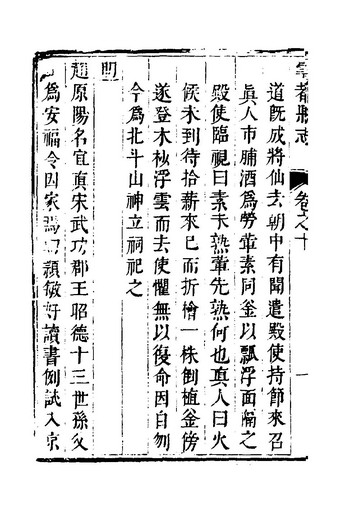 雩都縣志 卷之十 一
道旣成將仙去朝中有聞遣殿使持節來召
眞人市脯酒爲勞葷素同釜以瓢浮面隔之
殿使臨視曰素未熟葷先熟何也眞人曰火
候未到待拾薪來已而折檜一株倒植釜傍
遂登木杪浮雲而去使懼無以復命因自刎
今爲北斗山神立祠祀之
明
趙原陽名宜眞宋武功郡王昭德十三世孫父
爲安福令因家焉幼穎敏好讀書例試入京